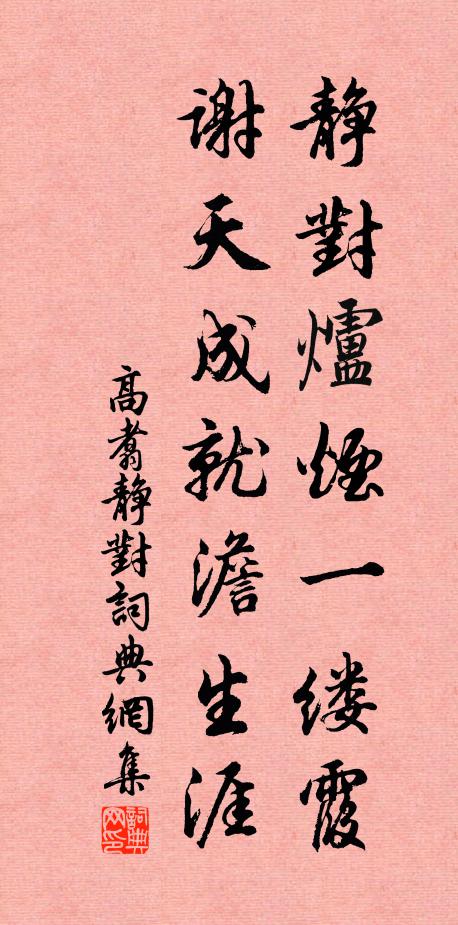 静對爐煙一縷霞
謝天成就澹生涯
高翥静對詞典網集
詞典网印